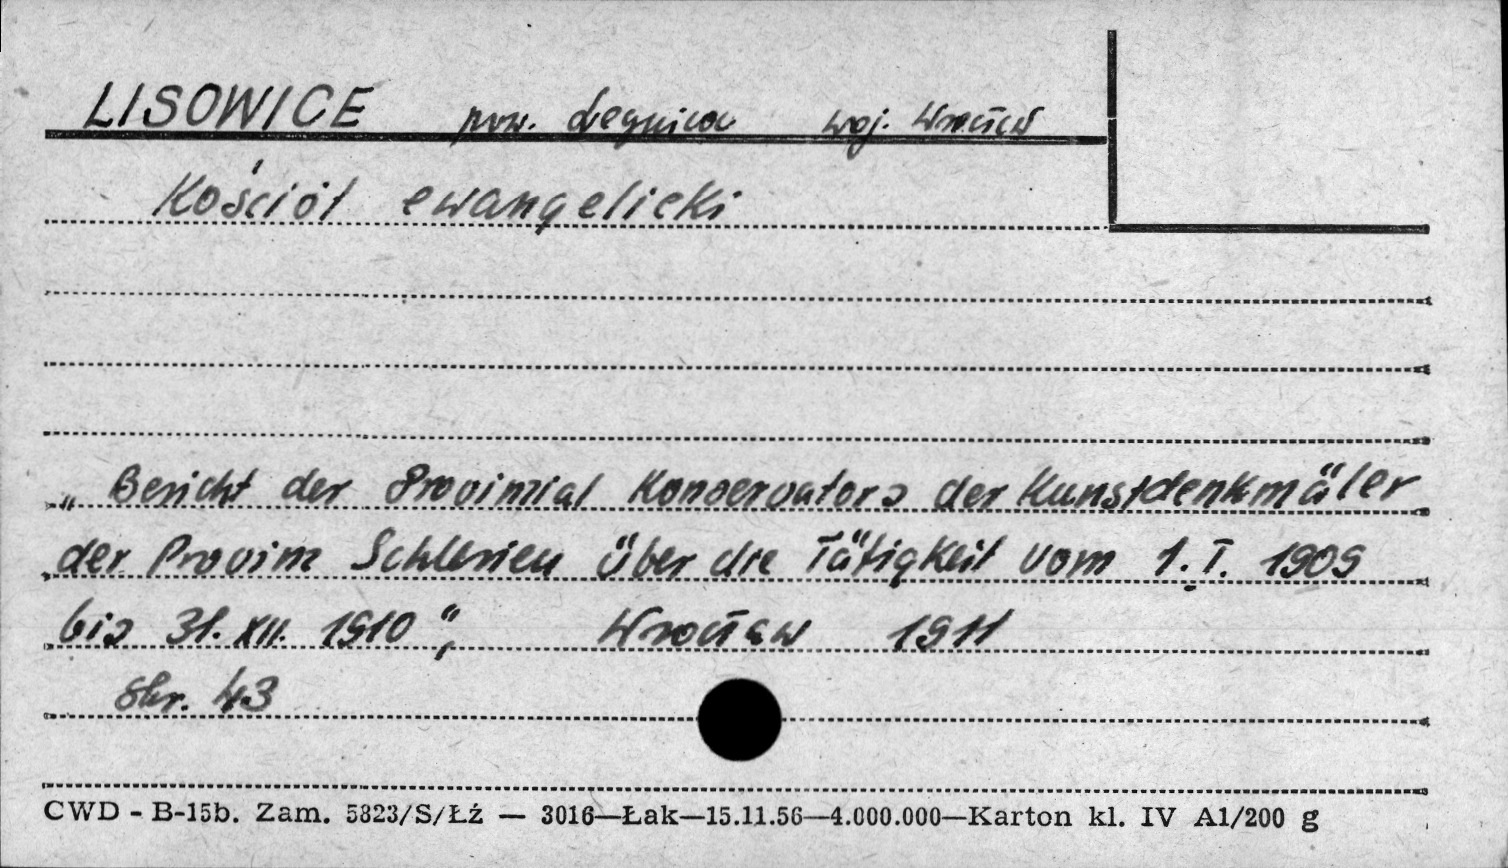 LISOWICE pow. Legnica woj. Wrocław
Kościół ewangelicki
„Bericht der Provinzial Konservators der Kunstdenkmäler
der Provinz Schlesien über die Tätigkeit vom 1.I. 1909
bis 31.XII. 1910", Wrocław 1911
str. 43
CWD - B-15b. Zam. 5823/S/Łź — 3016—Łak—15.11.56—4.000.000—Karton kl. IV A1/200 g